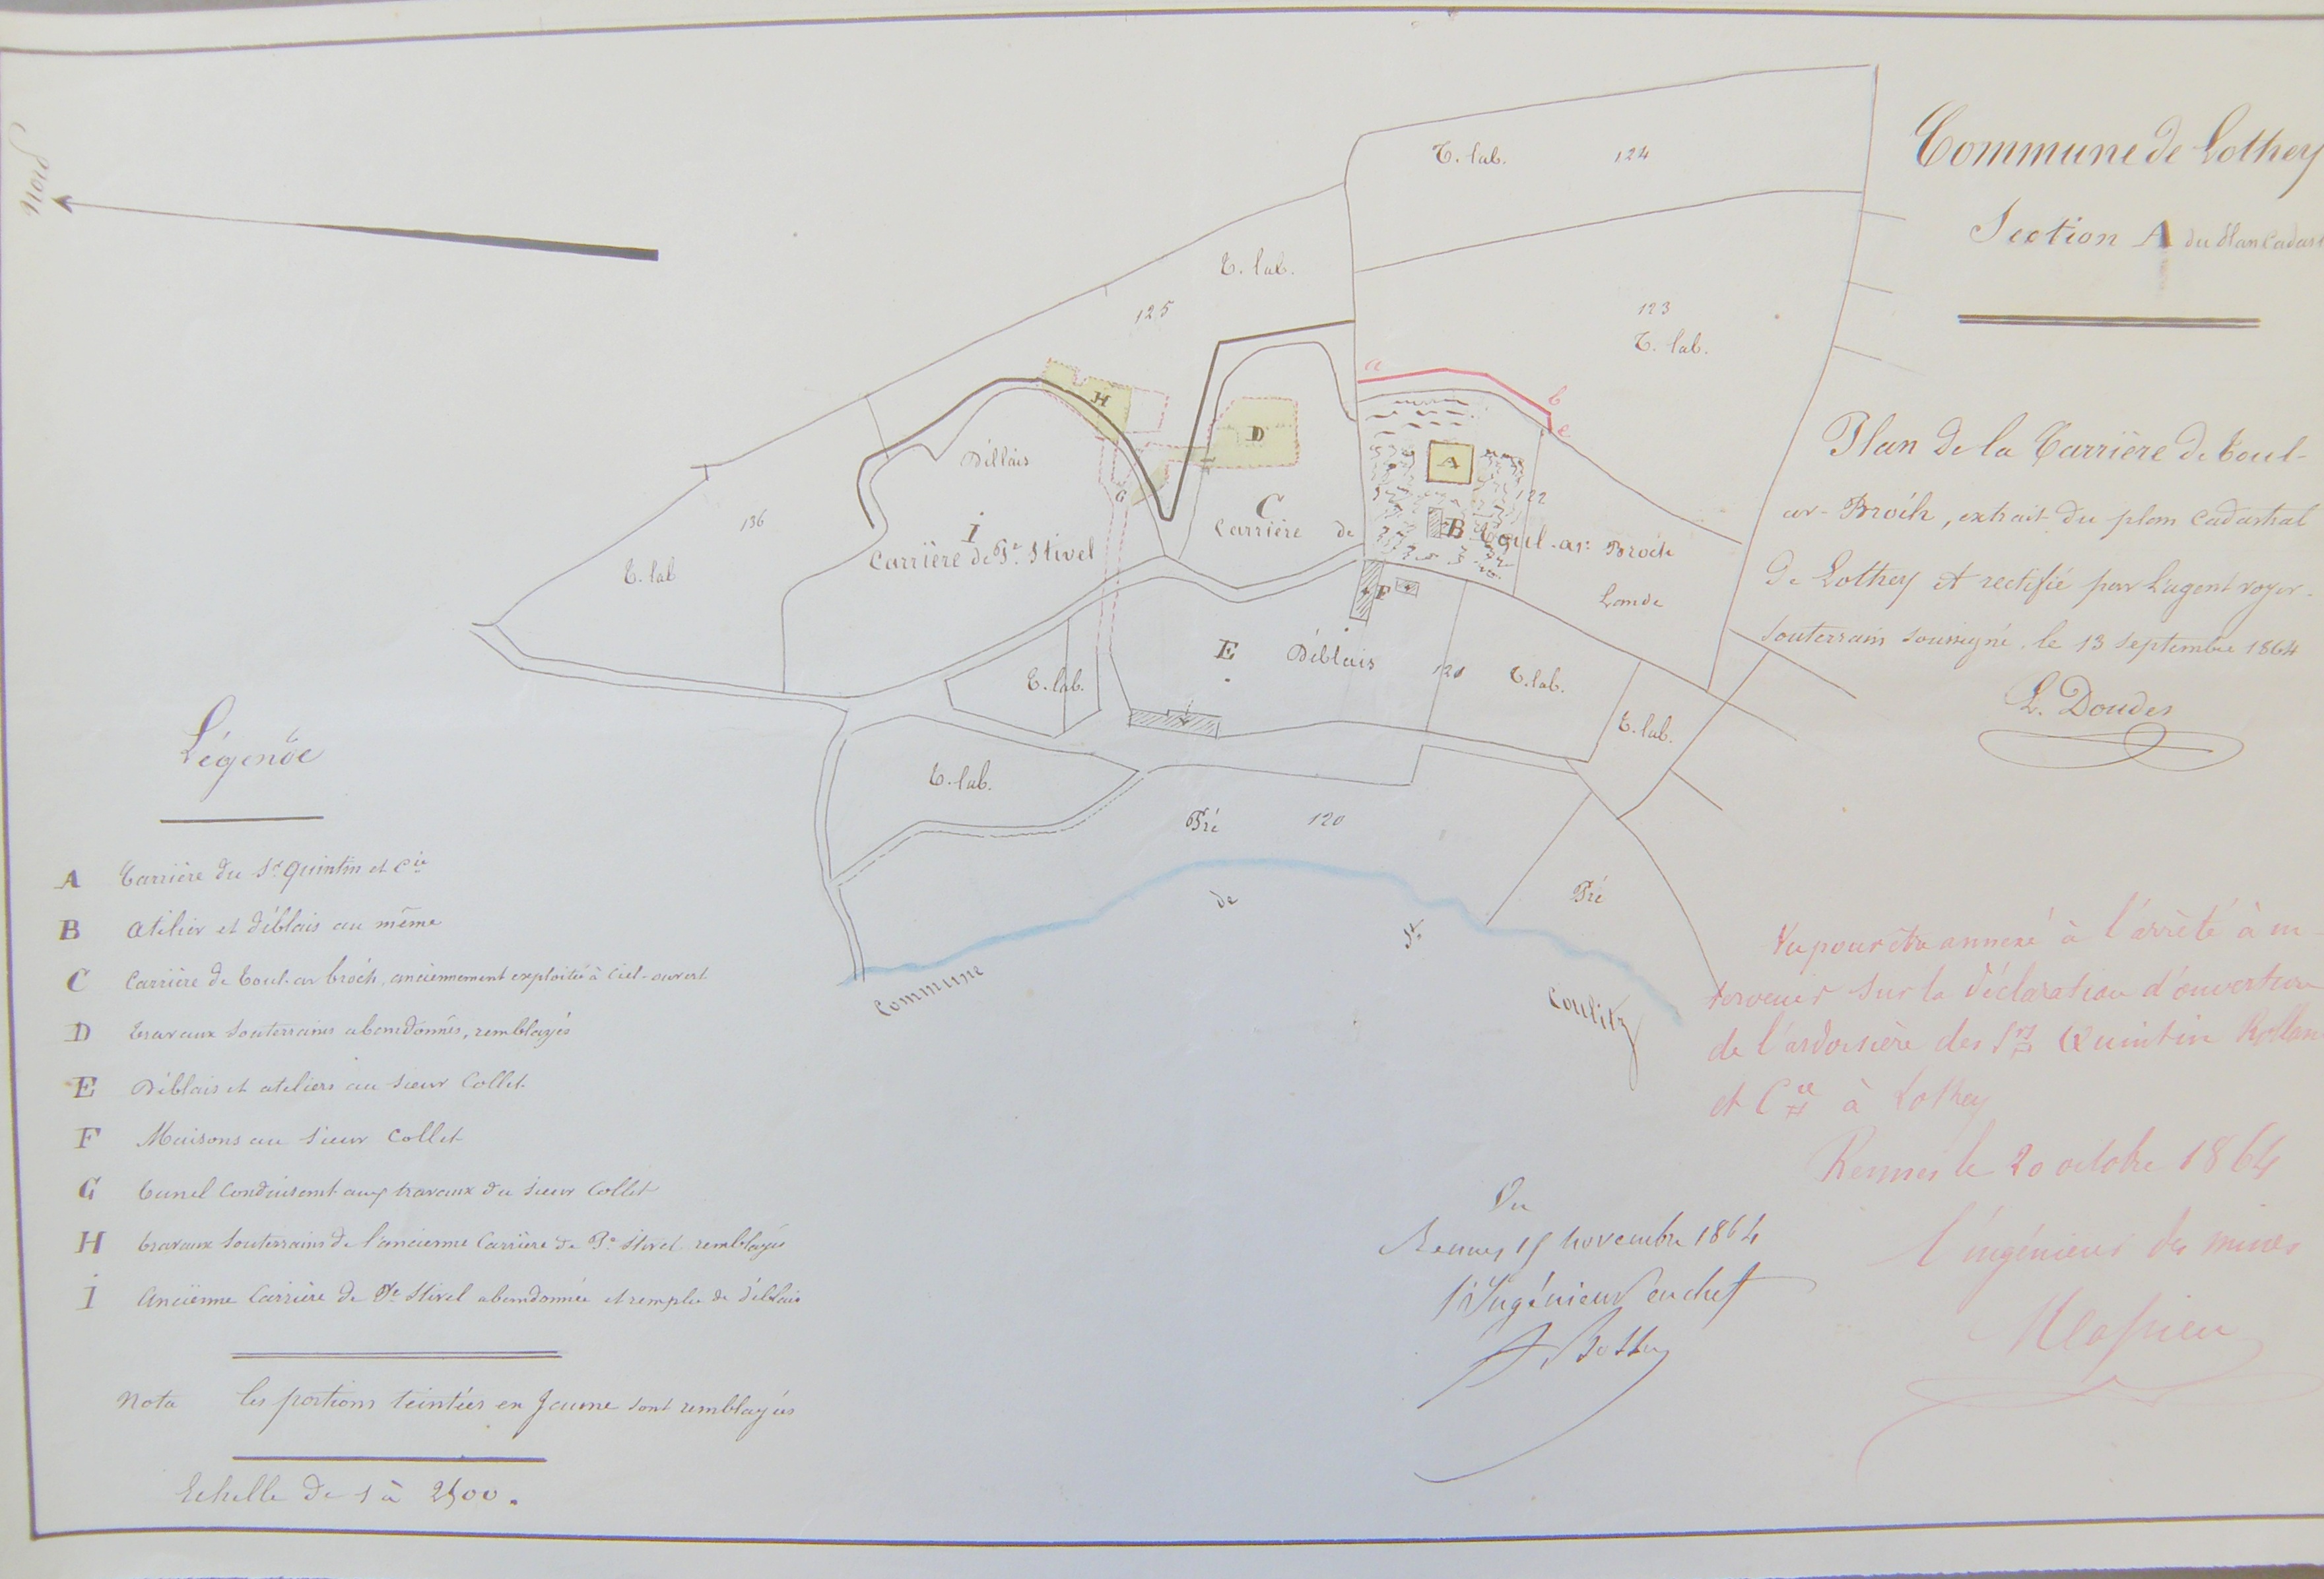 Nord
Commune de Lothey
Section A du Plan Cadast
Plan de la Carrière de Toul-
ar-Broch, extrait du plan cadastral
de Lothey et rectifié par l'agent voyer-
souterrain soussigné. le 13 septembre 1864
L. Doudes
T. lab. 124
T. lab.
125
123
T. lab.
a
b
c
H
D
A
Déblais
G
136
122
I
C
Carrière de Pt. Stivel
Carrière de Toul-ar-Broch
B
T. lab
F
Lande
E Déblais
121
T. lab.
T. lab.
T. lab.
T. lab.
Pré 120
Pré
Commune de St. Coulitz
Légende
A Carrière du Sr. Quintin et Cie
B Atelier et déblais au même
C Carrière de Toul-ar broch, anciennement exploitée à Ciel-ouvert
D Travaux souterrains abandonnés, remblayés
E Déblais et ateliers au sieur Collet
F Maisons au sieur Collet
G Tunel Conduisant aux travaux du sieur Collet
H travaux souterrains de l'ancienne Carrière de Pt. Stivel remblayés
I Ancienne Carrière de Pt. Stivel abandonnée et remplie de déblais
Nota les portions teintées en Jaune sont remblayées
Echelle de 1 à 2500.
Vu pour être annexé à l'arrêté à in-
tervenir sur la déclaration d'ouverture
de l'ardoisière des Srs Quintin Rolland
et Cie à Lothey
Rennes le 20 octobre 1864
l'ingénieur des mines
Massieu
Vu
Rennes 15 novembre 1864
l'Ingénieur en chef